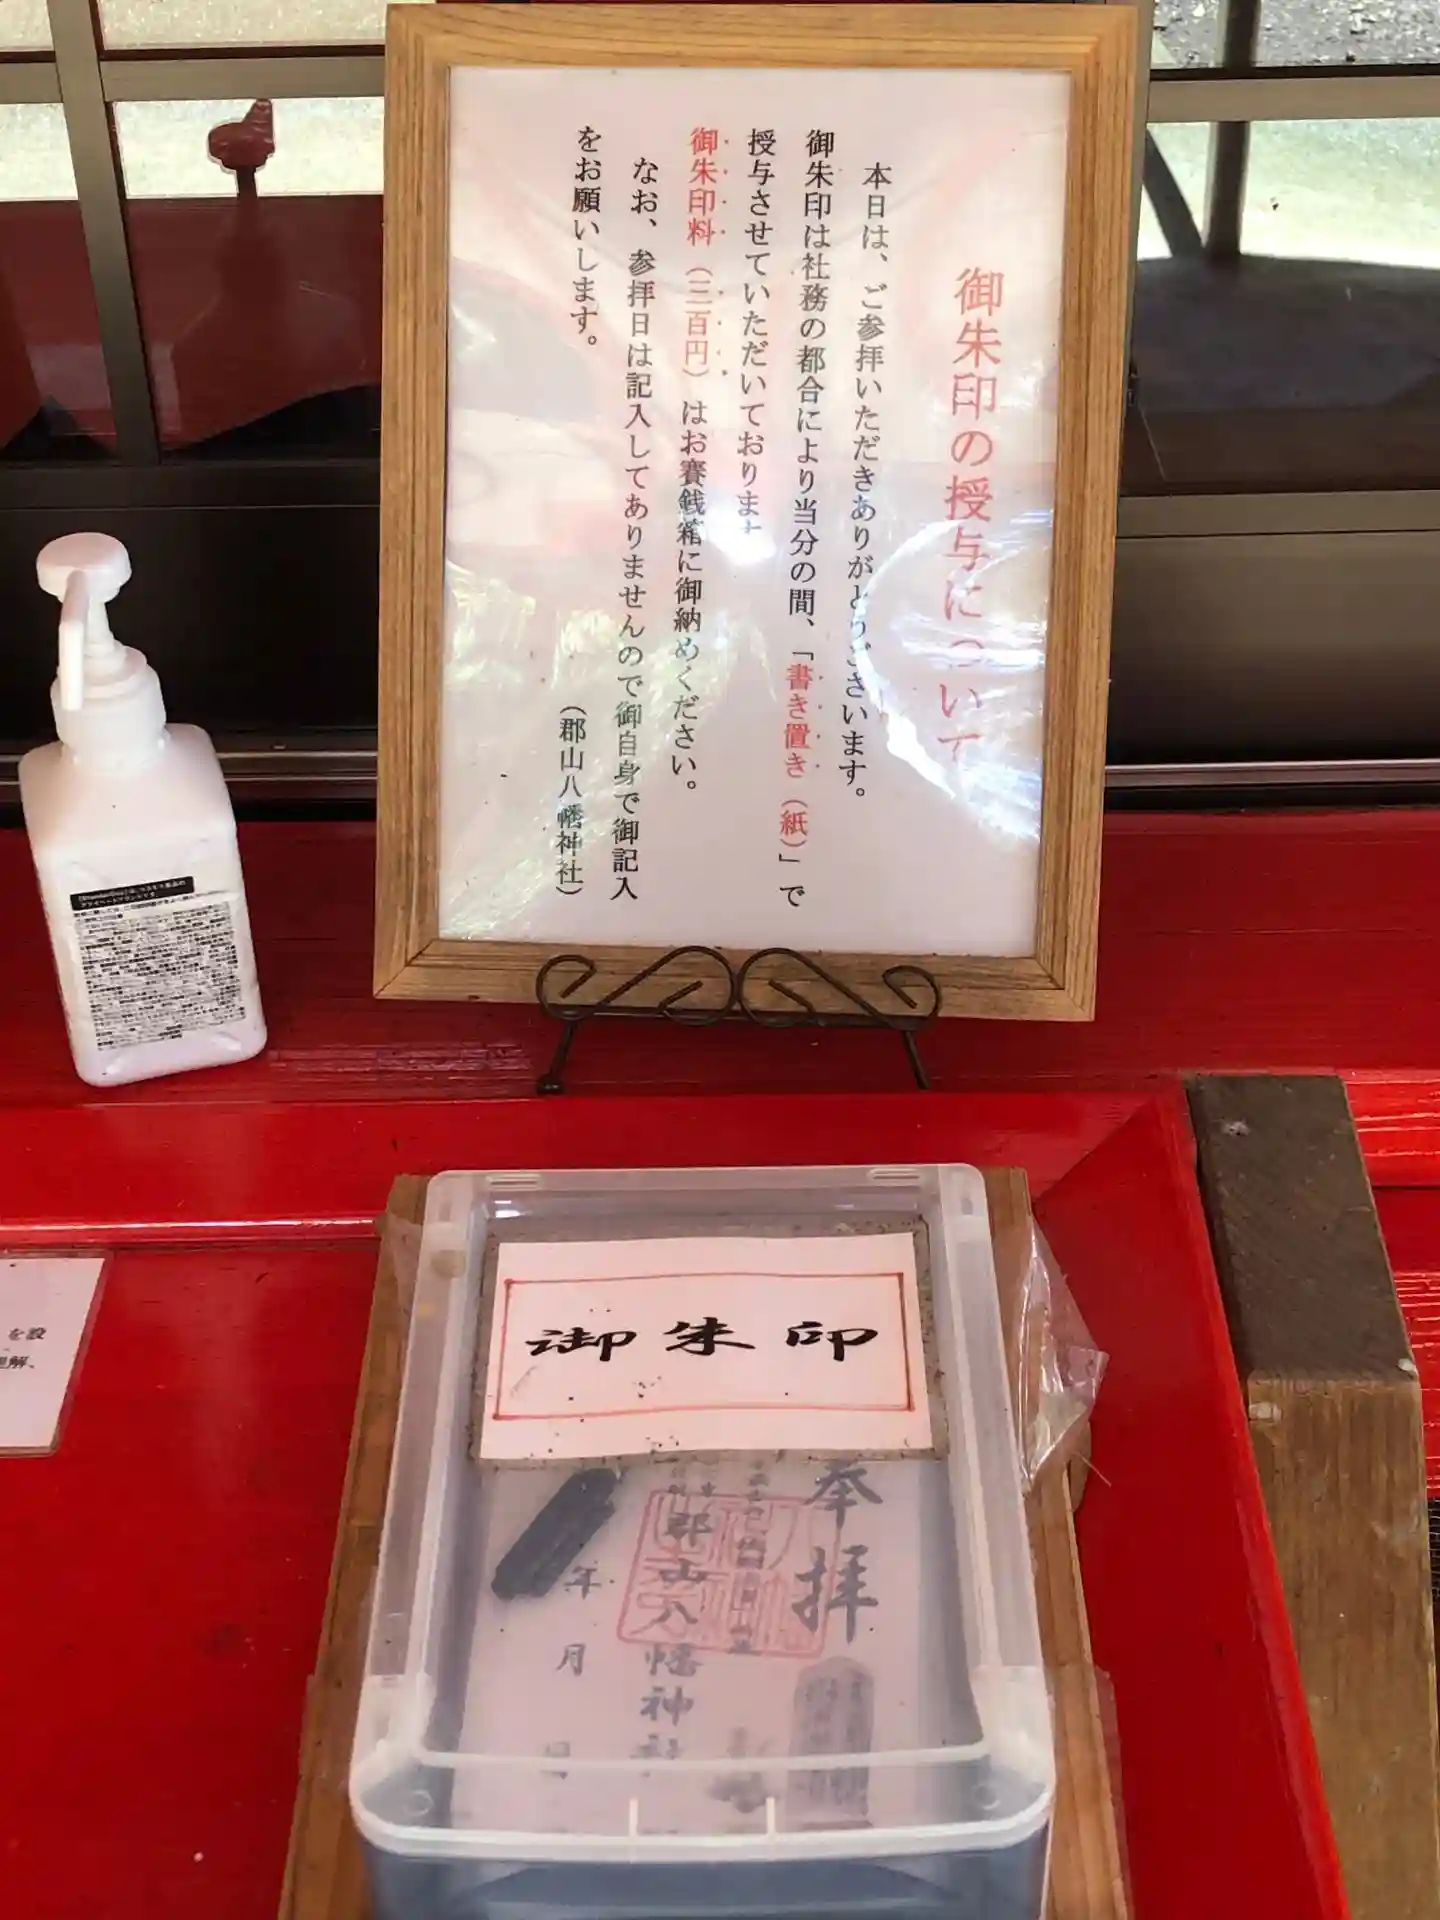 御朱印の授与について
本日は、ご参拝いただきありがとうございます。
御朱印は社務の都合により当分の間、「書き置き(紙)」で
授与させていただいております
御朱印料(三百円)はお賽銭箱に御納めください。
なお、参拝日は記入してありませんので御自身で御記入
をお願いします。
(郡山八幡神社)
を設
理解、
御朱印
奉拝
郡山八幡神社
年
月
日